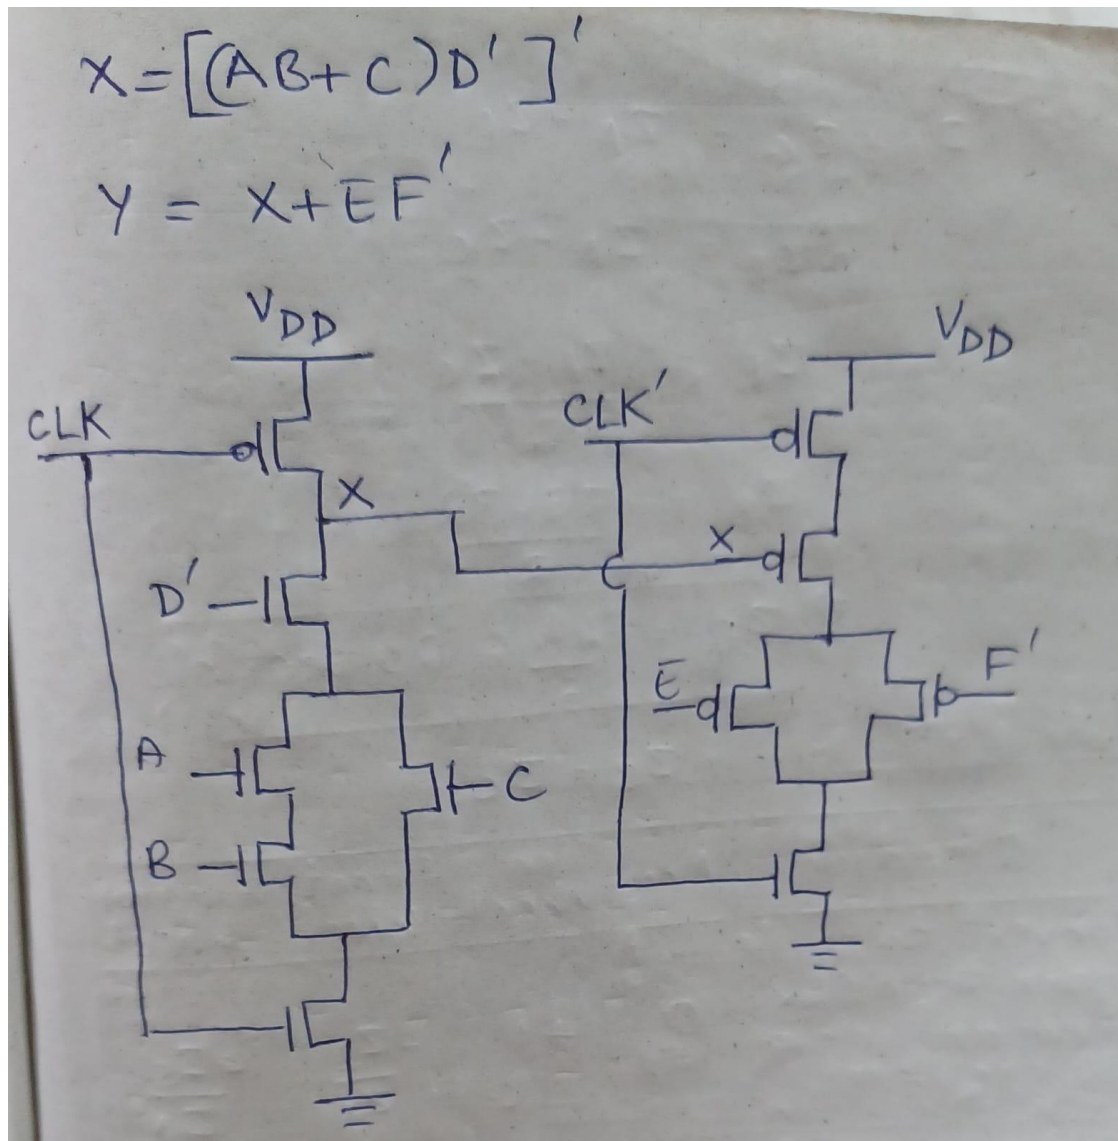 X=[(AB+C)D']'
Y = X+EF'
VDD
VDD
CLK
CLK'
X
X
D'
E
F'
A
C
B